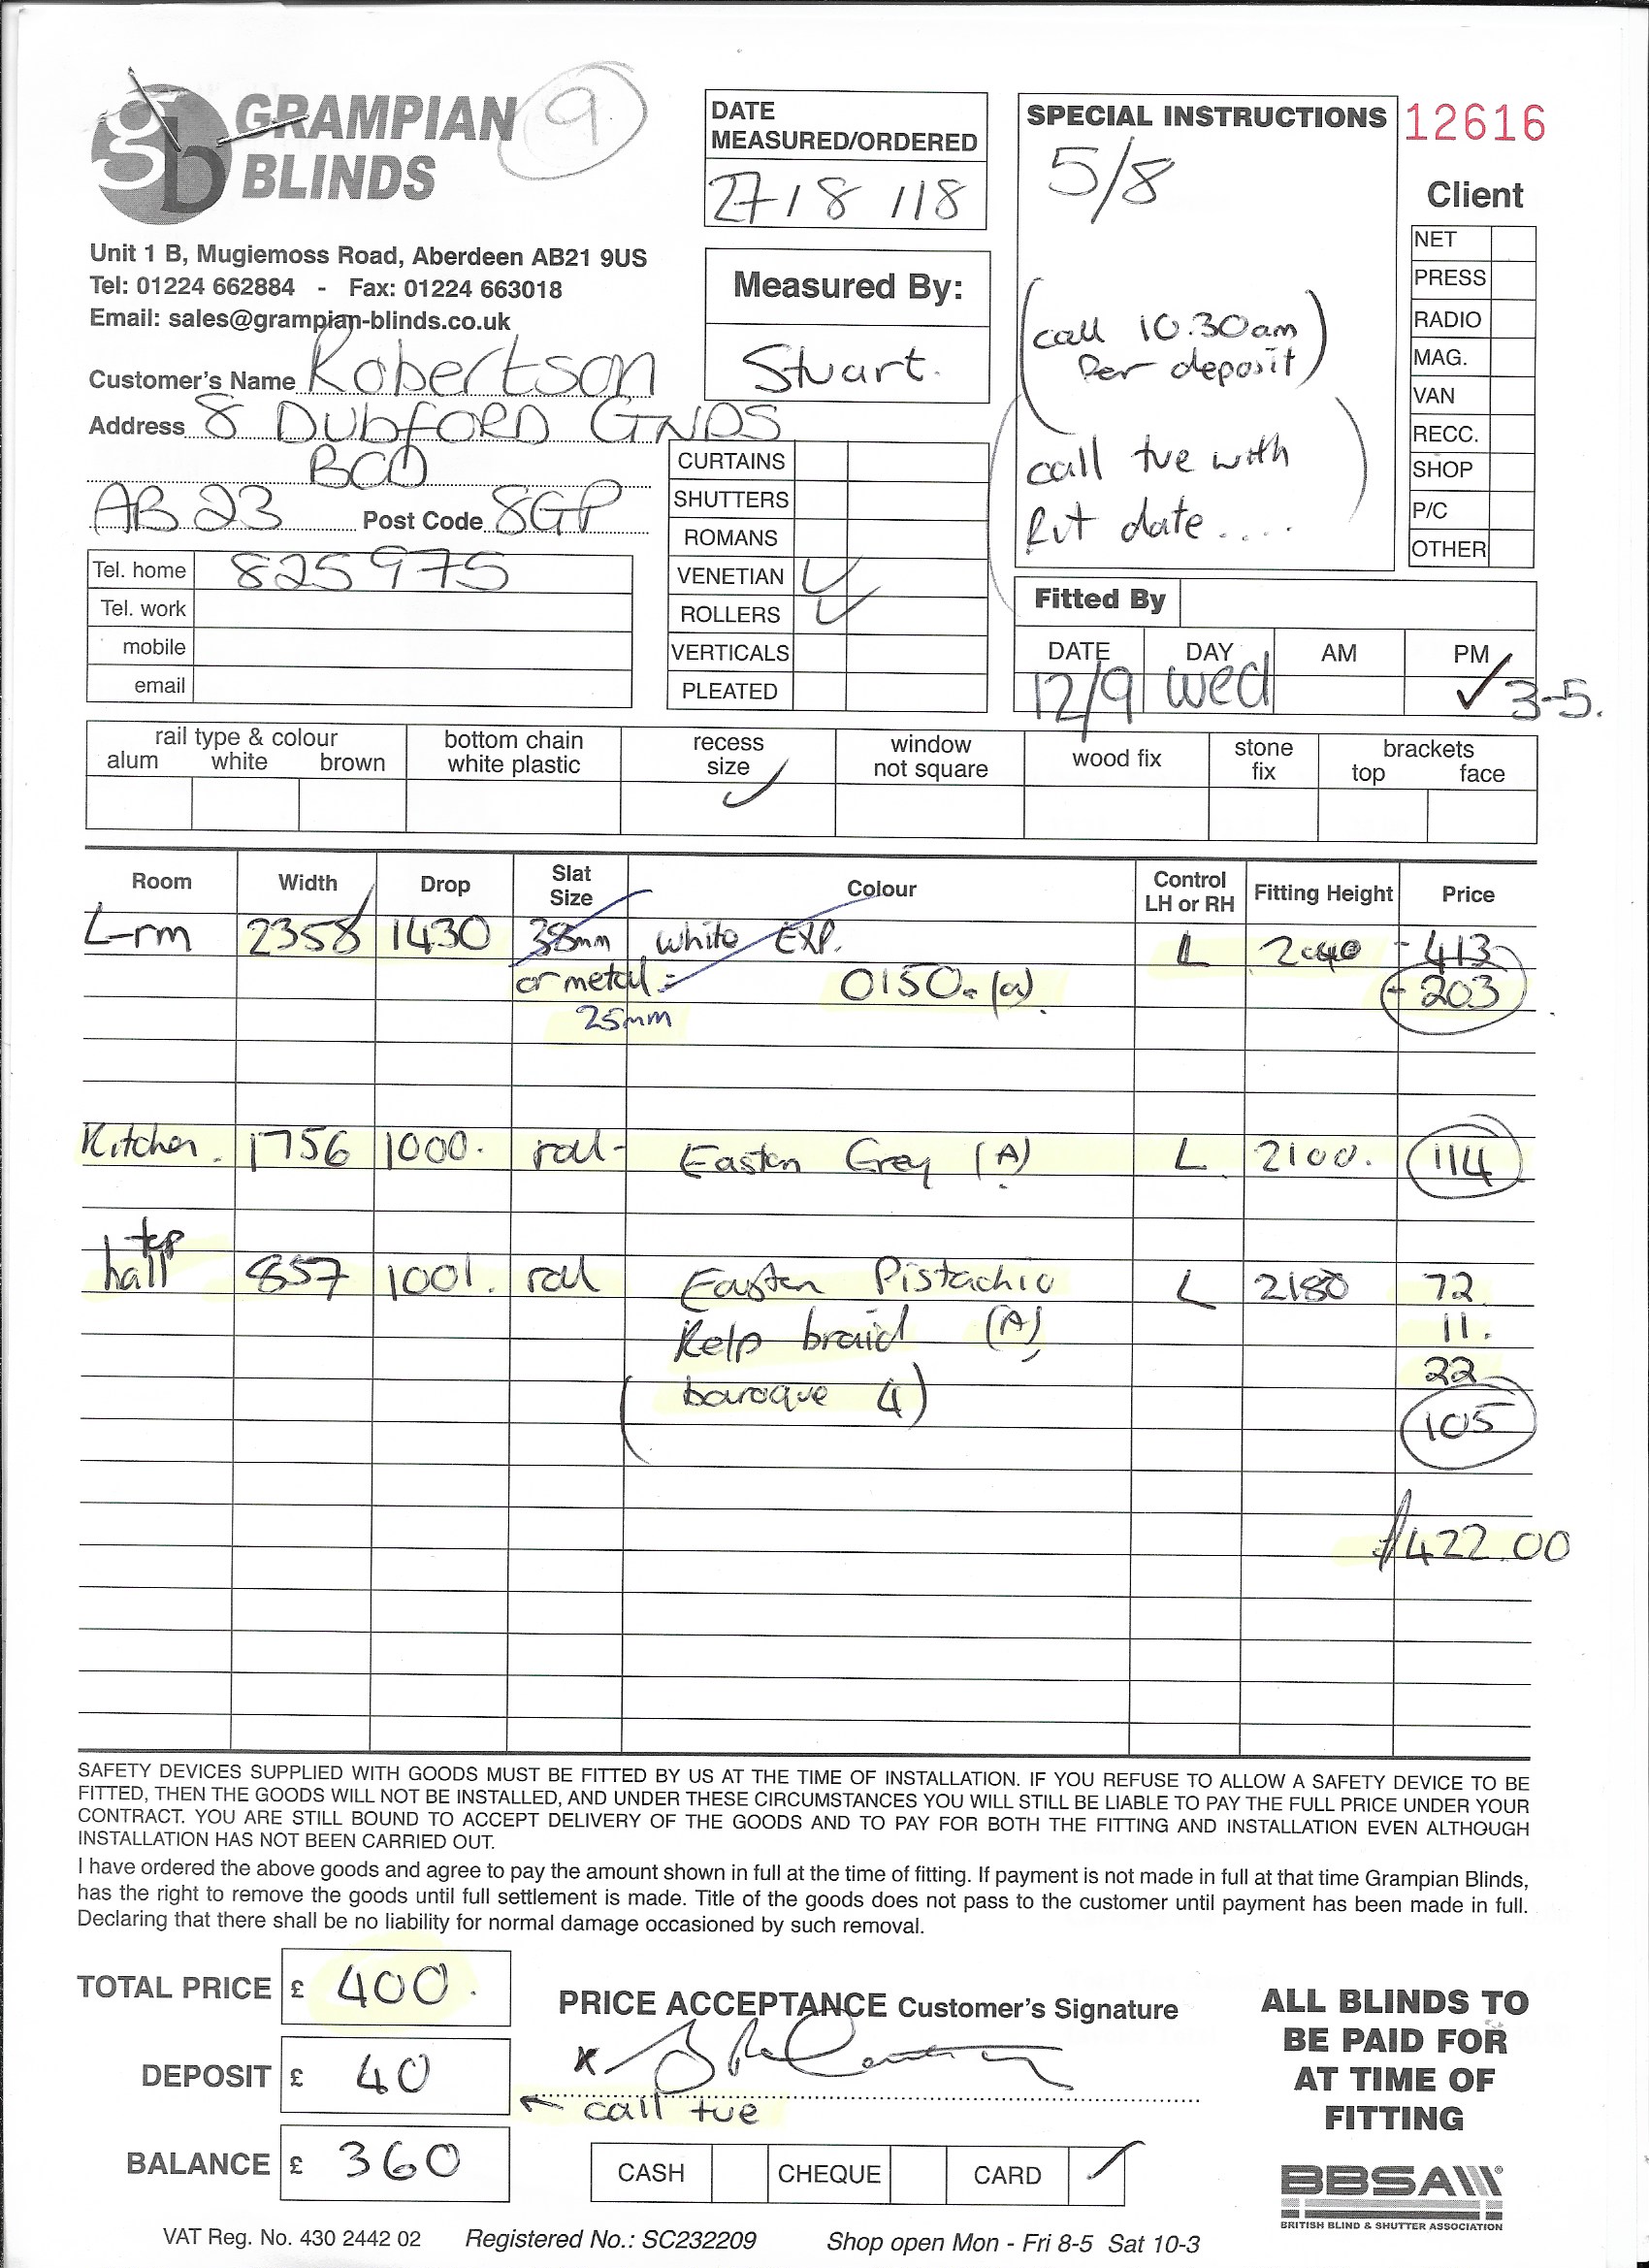 gb GRAMPIAN BLINDS
9
Unit 1 B, Mugiemoss Road, Aberdeen AB21 9US
Tel: 01224 662884 - Fax: 01224 663018
Email: sales@grampian-blinds.co.uk
Customer's Name Robertson
Address 8 DUBFORD GNDS
BOD
AB23 Post Code 8GP
Tel. home 825975
Tel. work
mobile
email
DATE MEASURED/ORDERED
27/8/18
Measured By:
Stuart.
CURTAINS
SHUTTERS
ROMANS
VENETIAN ✓
ROLLERS ✓
VERTICALS
PLEATED
SPECIAL INSTRUCTIONS
5/8
(call 10.30am
Per deposit)
(call tue with
fit date....)
12616
Client
NET
PRESS
RADIO
MAG.
VAN
RECC.
SHOP
P/C
OTHER
Fitted By
DATE DAY AM PM
12/9 wed ✓ 3-5.
rail type & colour
alum white brown
bottom chain
white plastic
recess
size ✓
window
not square
wood fix
stone
fix
brackets
top face
Room Width Drop Slat Size Colour Control LH or RH Fitting Height Price
L-rm 2358 1430 38mm white EXP. L 2040 - 413
or metal = 0150. (a). - 203
25mm
Kitchen. 1756 1000. roll- Easton Grey (A) L. 2100. 114
top
hall 857 1001. roll Easton Pistachio L 2180 72
Kelp braid (A) 11.
(baroque 4) 22
105
£422.00
SAFETY DEVICES SUPPLIED WITH GOODS MUST BE FITTED BY US AT THE TIME OF INSTALLATION. IF YOU REFUSE TO ALLOW A SAFETY DEVICE TO BE
FITTED, THEN THE GOODS WILL NOT BE INSTALLED, AND UNDER THESE CIRCUMSTANCES YOU WILL STILL BE LIABLE TO PAY THE FULL PRICE UNDER YOUR
CONTRACT. YOU ARE STILL BOUND TO ACCEPT DELIVERY OF THE GOODS AND TO PAY FOR BOTH THE FITTING AND INSTALLATION EVEN ALTHOUGH
INSTALLATION HAS NOT BEEN CARRIED OUT.
I have ordered the above goods and agree to pay the amount shown in full at the time of fitting. If payment is not made in full at that time Grampian Blinds,
has the right to remove the goods until full settlement is made. Title of the goods does not pass to the customer until payment has been made in full.
Declaring that there shall be no liability for normal damage occasioned by such removal.
TOTAL PRICE £ 400.
DEPOSIT £ 40
BALANCE £ 360
PRICE ACCEPTANCE Customer's Signature
x
← call tue
CASH CHEQUE CARD ✓
ALL BLINDS TO
BE PAID FOR
AT TIME OF
FITTING
BBSA
BRITISH BLIND & SHUTTER ASSOCIATION
VAT Reg. No. 430 2442 02 Registered No.: SC232209 Shop open Mon - Fri 8-5 Sat 10-3